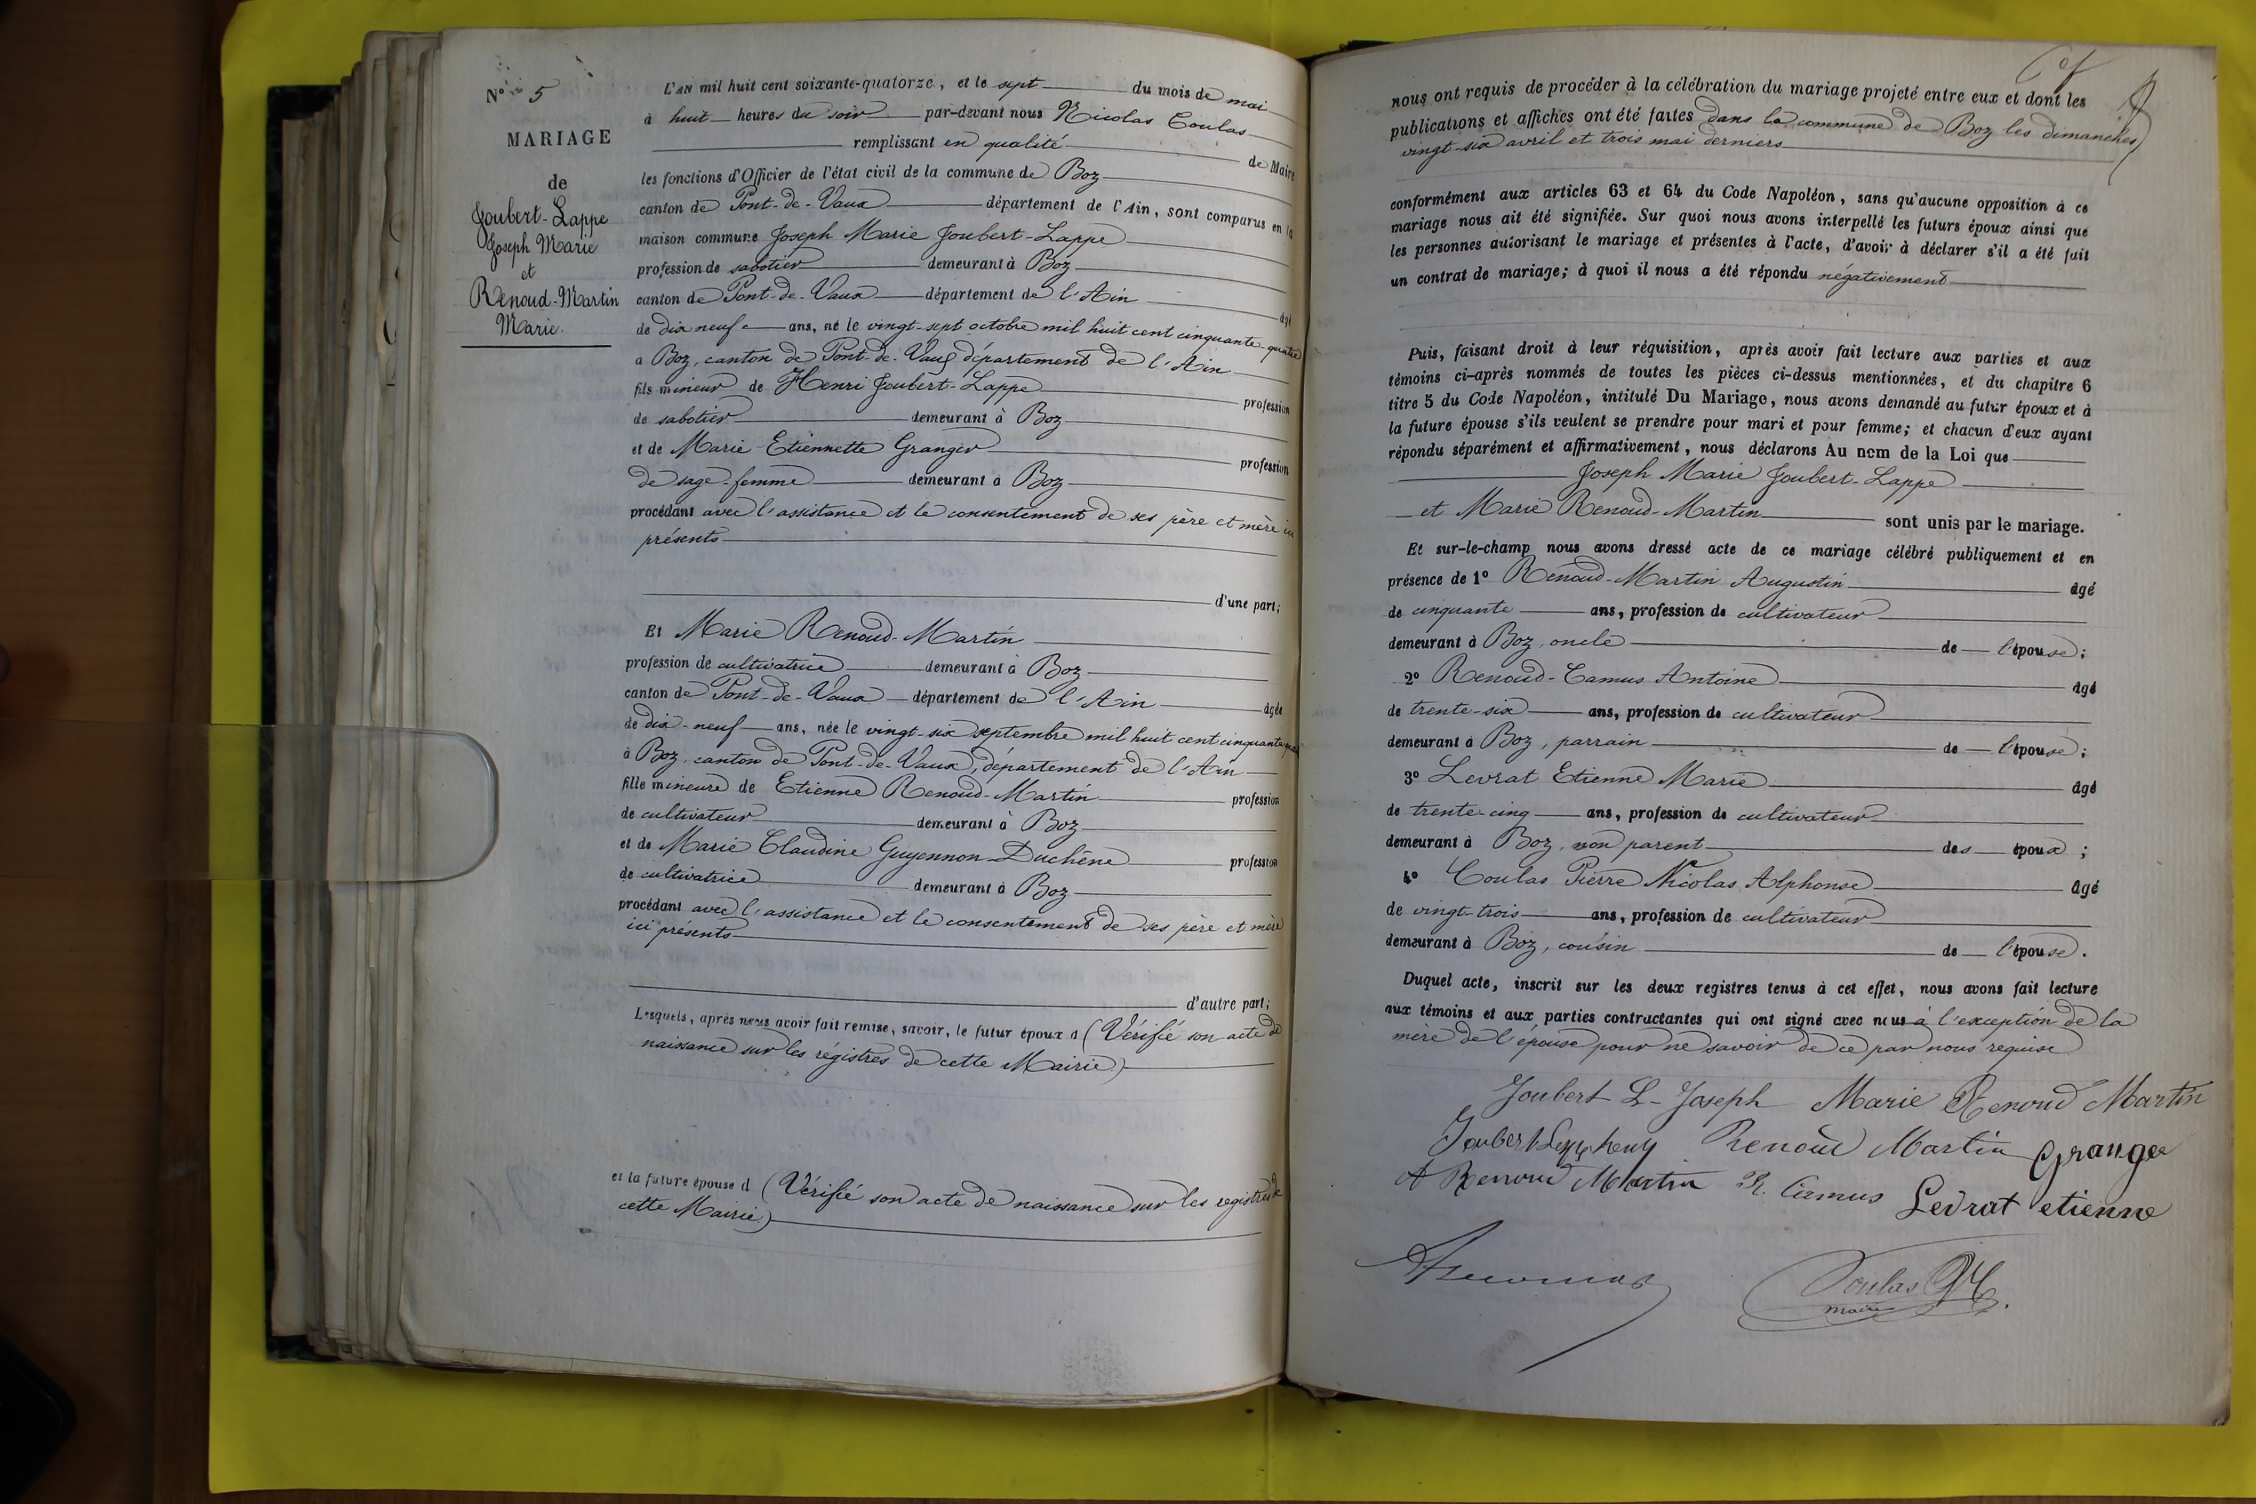 N° 5
MARIAGE
de
Joubert-Lappe
Joseph Marie
et
Renoud-Martin
Marie.
L'AN mil huit cent soixante-quatorze, et le sept du mois de mai
à huit heures du soir par-devant nous Nicolas Coulas
remplissant en qualité de Maire
les fonctions d'Officier de l'état civil de la commune de Boz
canton de Pont-de-Vaux département de l'Ain, sont comparus en la
maison commune Joseph Marie Joubert-Lappe
profession de sabotier demeurant à Boz
canton de Pont-de-Vaux département de l'Ain âgé
de dix neuf ans, né le vingt-sept octobre mil huit cent cinquante-quatre
à Boz, canton de Pont-de-Vaux département de l'Ain
fils mineur de Henri Joubert-Lappe profession
de sabotier demeurant à Boz
et de Marie-Etiennette Granger profession
de sage-femme demeurant à Boz
procédant avec l'assistance et le consentement de ses père et mère ici
présents
d'une part;
Et Marie Renoud-Martin
profession de cultivatrice demeurant à Boz
canton de Pont-de-Vaux département de l'Ain âgée
de dix-neuf ans, née le vingt-six septembre mil huit cent cinquante
à Boz, canton de Pont-de-Vaux, département de l'Ain
fille mineure de Etienne Renoud-Martin profession
de cultivateur demeurant à Boz
et de Marie Claudine Guyennon-Duchêne profession
de cultivatrice demeurant à Boz
procédant avec l'assistance et le consentement de ses père et mère
ici présents
d'autre part;
Lesquels, après nous avoir fait remise, savoir, le futur époux d (Vérifié son acte de
naissance sur les régistres de cette Mairie)
et la future épouse d (Vérifié son acte de naissance sur les registres de
cette Mairie)
nous ont requis de procéder à la célébration du mariage projeté entre eux et dont les
publications et affiches ont été faites dans la commune de Boz les dimanches
vingt-six avril et trois mai derniers
conformément aux articles 63 et 64 du Code Napoléon, sans qu'aucune opposition à ce
mariage nous ait été signifiée. Sur quoi nous avons interpellé les futurs époux ainsi que
les personnes autorisant le mariage et présentes à l'acte, d'avoir à déclarer s'il a été fait
un contrat de mariage; à quoi il nous a été répondu négativement
Puis, faisant droit à leur réquisition, après avoir fait lecture aux parties et aux
témoins ci-après nommés de toutes les pièces ci-dessus mentionnées, et du chapitre 6
titre 5 du Code Napoléon, intitulé Du Mariage, nous avons demandé au futur époux et à
la future épouse s'ils veulent se prendre pour mari et pour femme; et chacun d'eux ayant
répondu séparément et affirmativement, nous déclarons Au nom de la Loi que
Joseph Marie Joubert-Lappe
et Marie Renoud-Martin sont unis par le mariage.
Et sur-le-champ nous avons dressé acte de ce mariage célébré publiquement et en
présence de 1° Renoud-Martin Augustin âgé
de cinquante ans, profession de cultivateur
demeurant à Boz, oncle de l'épouse;
2° Renoud-Camus Antoine âgé
de trente-six ans, profession de cultivateur
demeurant à Boz, parrain de l'épouse;
3° Levrat Etienne Marie âgé
de trente-cinq ans, profession de cultivateur
demeurant à Boz, non parent des époux;
4° Coulas Pierre Nicolas Alphonse âgé
de vingt-trois ans, profession de cultivateur
demeurant à Boz, cousin de l'épouse.
Duquel acte, inscrit sur les deux registres tenus à cet effet, nous avons fait lecture
aux témoins et aux parties contractantes qui ont signé avec nous à l'exception de la
mère de l'épouse pour ne savoir de ce par nous requise
Joubert L- Joseph Marie Renoud Martin
Joubert Lappe henry Renoud Martin Granger
A Renoud Martin R. Camus Levrat etienne
Coulas
maire